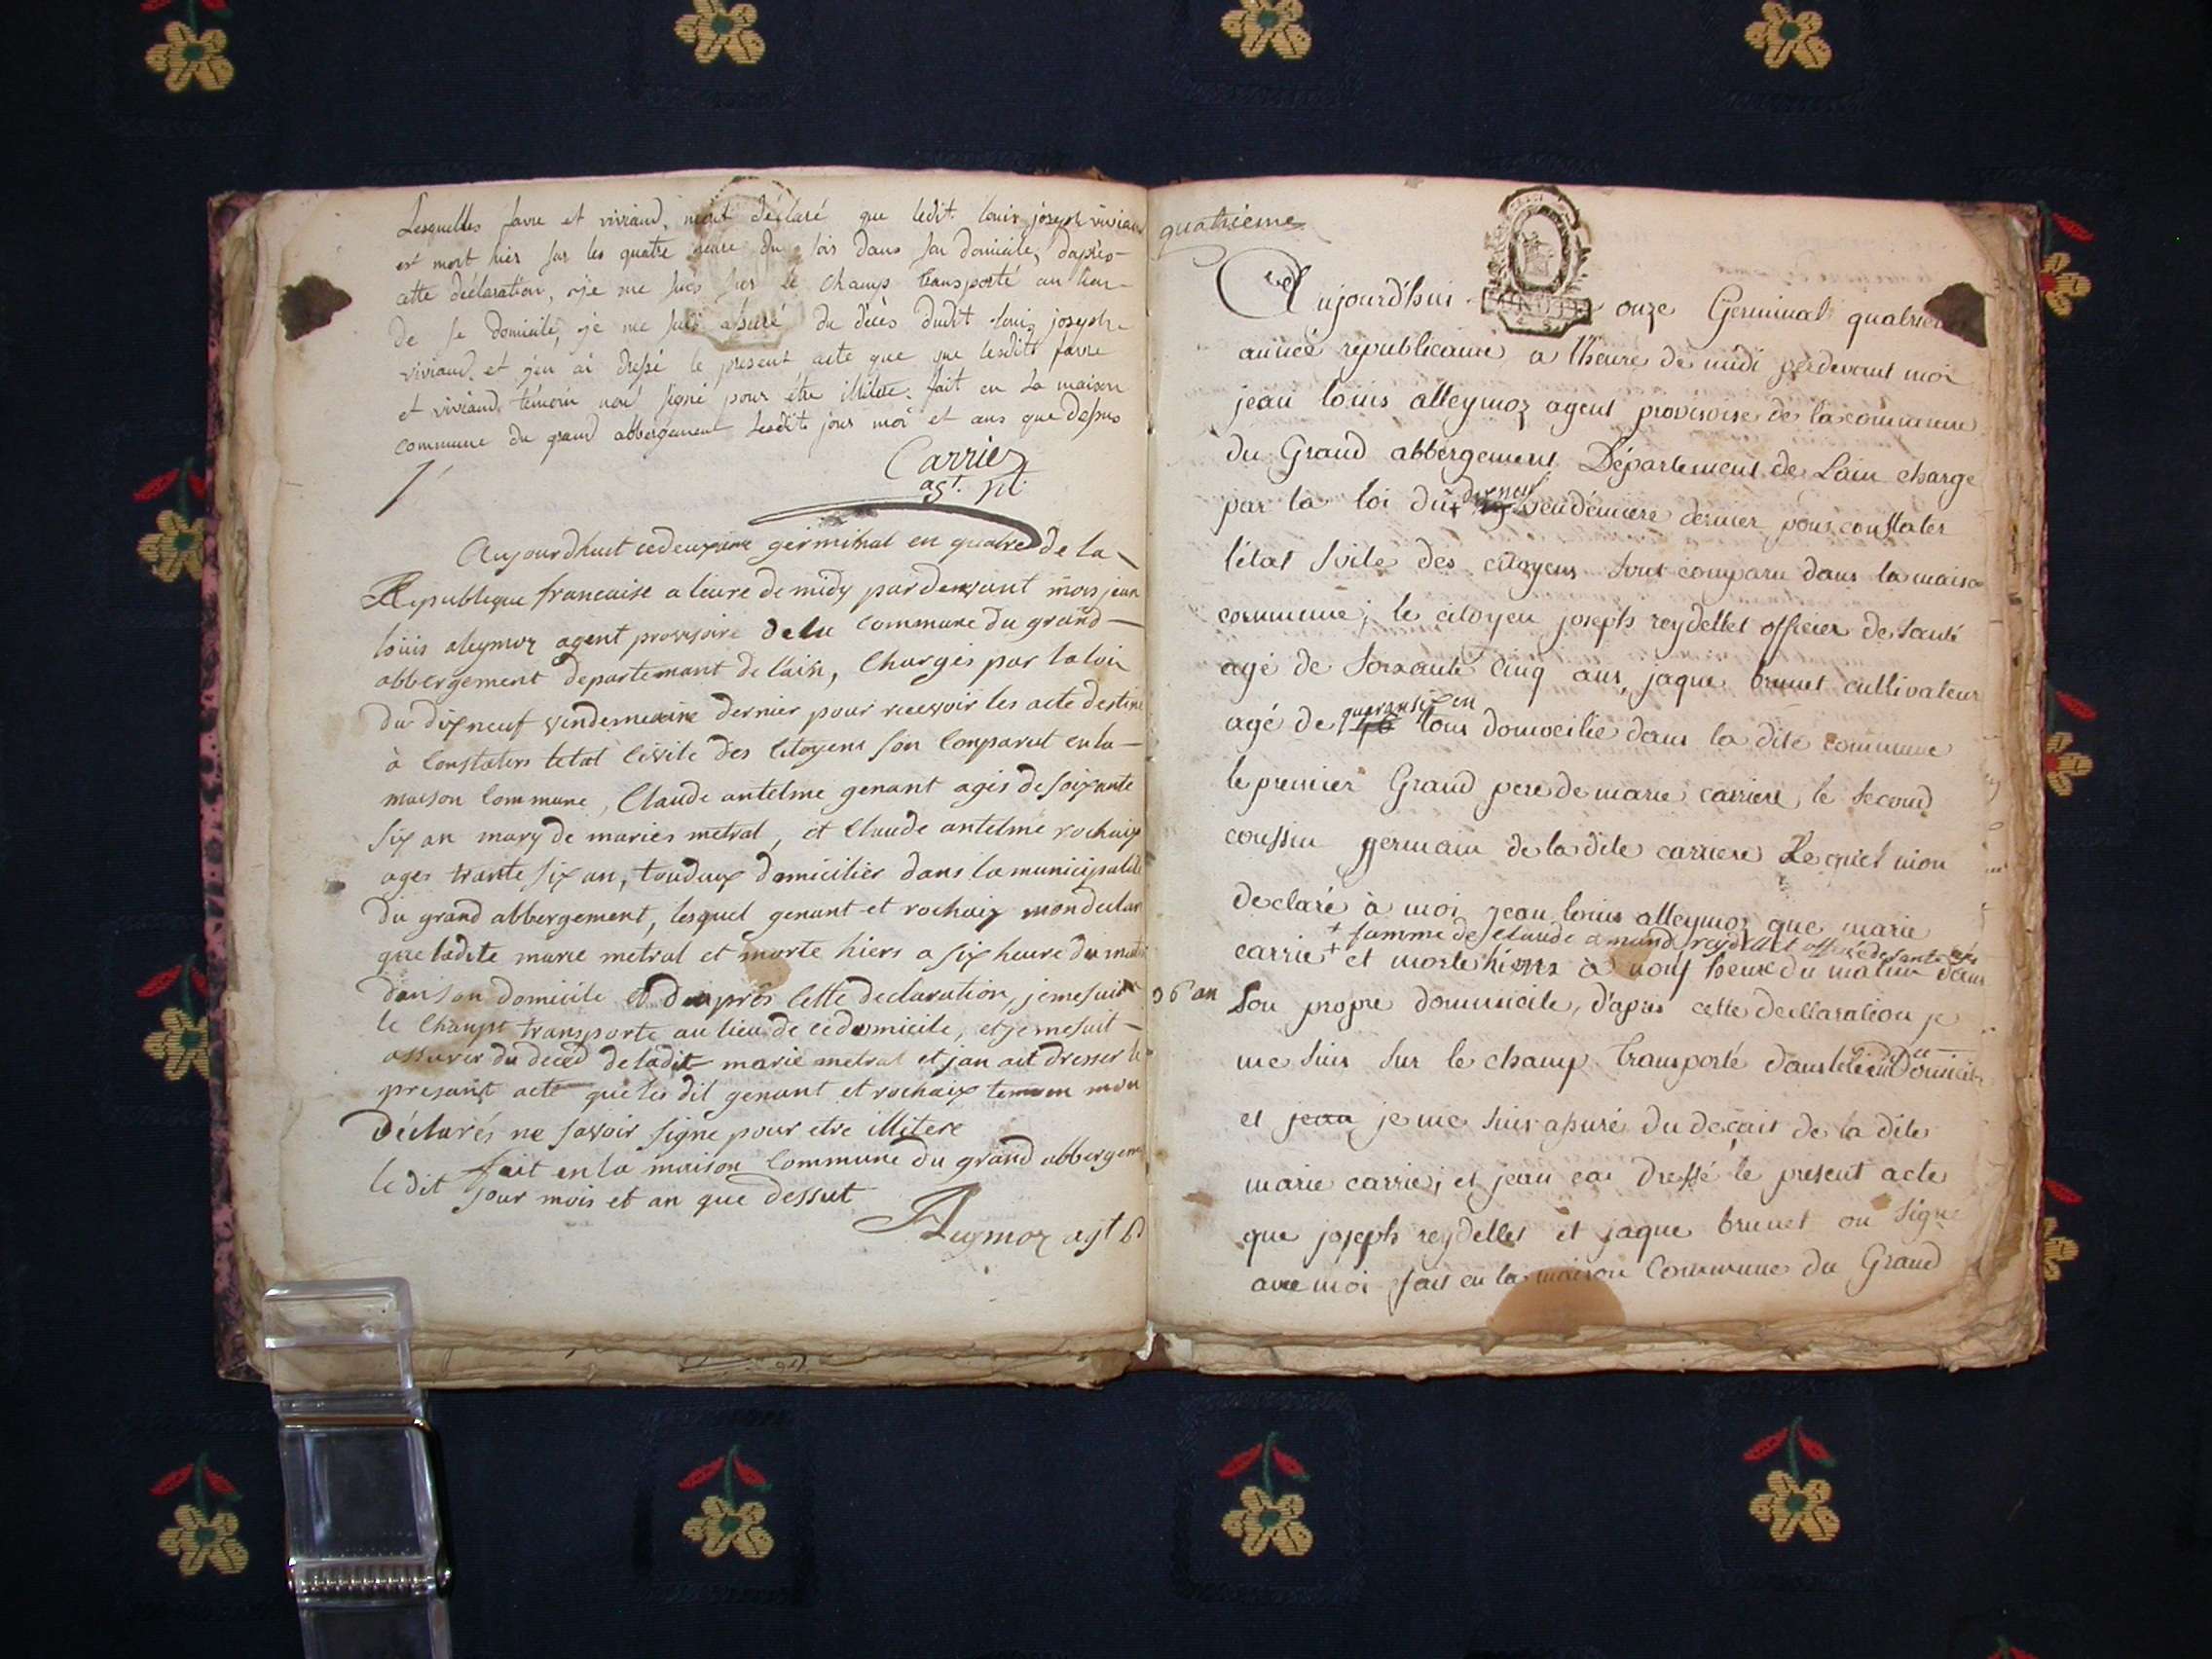 Lesquelles favre et viviand, mont déclaré que ledit louis joseph viviand
est mort hier sur les quatre heure du soir dans son domicile, dapres
cette déclaration, je me suis sur le champs transporté au lieu
de se domicile, je me suis assuré du décès dudit louis joseph
viviand, et j'en ai dressé le present acte que lesdits favre
et viviand témoin non signé pour être illitére. fait en la maison
commune du grand abbergement lesdit jour moi et ans que dessus
Carrier
agt.
Aujourdhuit ce deuxieme germinal en quatre de la
Republique francaise a leure de midy pardevant mois jean
louis aleymoz agent provisoire de la commune du grand
abbergement departemant de lain, Charges par la loix
du dix neuf vendemiaire dernier pour recevoir les acte destine
à Constaters letat Civile des Citoyens son Comparut en la
maison Commune, Claude antelme genant agés de soixante
six an mary de maries metral, et Claude antelme rochaix
ages trante six an, toudeux domiciliés dans la municipalité
du grand abbergement, lesquel genant et rochaix mon declar
que ladite marie metral et morte hiers a six heure du mat
dan son domicile et d'après Cette declaration, je me suis
le Champt transporte au lieu de ce domicile, et je me suit
assurer du deced de ladit marie metral et jan ait dresser le
presant acte que les dit genant et rochaix temoin mon
déclarés ne savoir signe pour etre illitere
fait en la maison Commune du grand abbergem
le dit jour mois et an que dessut
Aleymoz agt
quatrieme
Aujourd'hui onze Germinal quatrieme
année républicaine a l'heure de midi pardevant moi
jean louis alleymoz agent provisoire de la commune
du Grand abbergement Département de Lain charge
dixneuf
par la loi du 19 vendémiere dernier pour constater
l'état sivile des citoyens sont comparu dans la maison
commune; le citoyen joseph reydellet officier de santé
agé de soixante cinq ans, jaque brunet cultivateur
quaransix en
agé de 46 tous domicilie dans la dite commune
le premier Grand pere de marie carriere le second
coussin germain de la dite carriere Lequel mon
declaré à moi jean louis alleymoz que marie
+ famme de Claude amand reydellet de sante
carrie + et morte hiers à nouf heure du matin dans
36 an son propre dommicile, d'apres cette decllaration je
me suis sur le champ transporté dans le lieu de ce Domicile
et jean je me suis assuré du deçait de la dite
marie carrie, et jean eai dressé le present acte
que joseph reydellet et jaque brunet on signe
avec moi fait en la maison Commune du Grand